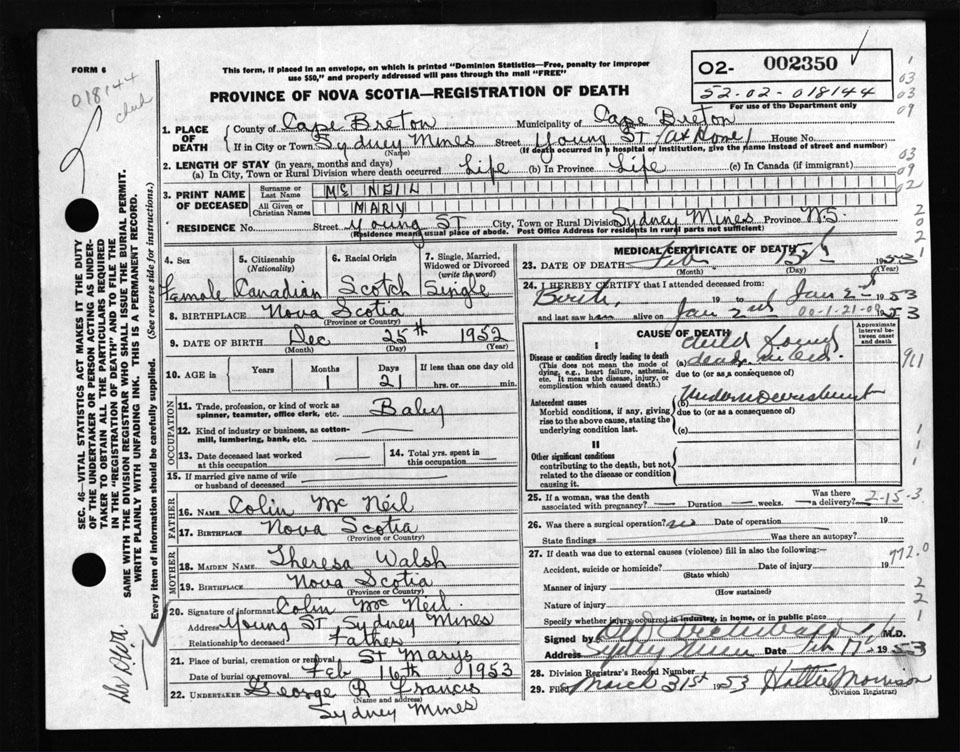 FORM 6
018144
This form, if placed in an envelope, on which is printed "Dominion Statistics—Free, penalty for improper
use $50," and properly addressed will pass through the mail "FREE"
PROVINCE OF NOVA SCOTIA—REGISTRATION OF DEATH
02- 002350
52-02-018144
For use of the Department only
1. PLACE OF DEATH
County of Cape Breton Municipality of Cape Breton
If in City or Town Sydney Mines Street Young St (at Home) House No.
(Name) (If death occurred in a hospital or institution, give the name instead of street and number)
2. LENGTH OF STAY (in years, months and days)
(a) In City, Town or Rural Division where death occurred Life (b) In Province Life (c) In Canada (if immigrant)
3. PRINT NAME OF DECEASED
Surname or Last Name McNEIL
All Given or Christian Names MARY
RESIDENCE No. Street Young ST City, Town or Rural Division Sydney Mines Province N.S.
(Residence means usual place of abode. Post Office Address for residents in rural parts not sufficient)
4. Sex 5. Citizenship (Nationality) 6. Racial Origin 7. Single, Married, Widowed or Divorced (write the word)
Female Canadian Scotch Single
8. BIRTHPLACE Nova Scotia
(Province or Country)
9. DATE OF BIRTH Dec 25th 1952
(Month) (Day) (Year)
10. AGE in Years Months Days If less than one day old
1 21 hrs. or min.
OCCUPATION
11. Trade, profession, or kind of work as spinner, teamster, office clerk, etc. Baby
12. Kind of industry or business, as cotton-mill, lumbering, bank, etc.
13. Date deceased last worked at this occupation
14. Total yrs. spent in this occupation
15. If married give name of wife or husband of deceased
FATHER
16. NAME Colin Mc Neil
17. BIRTHPLACE Nova Scotia
(Province or Country)
MOTHER
18. MAIDEN NAME Theresa Walsh
19. BIRTHPLACE Nova Scotia
(Province or Country)
20. Signature of informant Colin Mc Neil
Address Young ST Sydney Mines
Relationship to deceased Father
21. Place of burial, cremation or removal St Marys
Date of burial or removal Feb 16th 1953
22. UNDERTAKER George R Francis
(Name and address)
Sydney Mines
MEDICAL CERTIFICATE OF DEATH
23. DATE OF DEATH Feb 15th 1953
(Month) (Day) (Year)
24. I HEREBY CERTIFY that I attended deceased from:
Birth 19 to Jan 2nd 1953
and last saw h alive on Jan 2nd 1953
00-1-21-09
CAUSE OF DEATH
Approximate interval between onset and death
I
Disease or condition directly leading to death
(This does not mean the mode of dying, e.g., heart failure, asthenia, etc. It means the disease, injury, or complication which caused death.)
Child found
(a) dead in bed.
due to (or as a consequence of)
Antecedent causes
Morbid conditions, if any, giving rise to the above cause, stating the underlying condition last.
(b) Undernourishment
due to (or as a consequence of)
(c)
II
Other significant conditions
contributing to the death, but not related to the disease or condition causing it.
25. If a woman, was the death associated with pregnancy? Duration weeks. Was there a delivery?
2-15-3
26. Was there a surgical operation? no Date of operation 19
State findings Was there an autopsy?
27. If death was due to external causes (violence) fill in also the following:—
Accident, suicide or homicide? Date of injury 19
(State which)
772.0
Manner of injury
(How sustained)
Nature of injury
Specify whether injury occurred in industry, in home, or in public place
Signed by M.D.
Address Sydney Mines Date Feb 17 1953
28. Division Registrar's Record Number
29. Filed March 31st 1953 Hattie Morrison
(Division Registrar)
SEC. 46—VITAL STATISTICS ACT MAKES IT THE DUTY
OF THE UNDERTAKER OR PERSON ACTING AS UNDER-
TAKER TO OBTAIN ALL THE PARTICULARS REQUIRED
IN THE "REGISTRATION OF DEATH" AND TO FILE THE
SAME WITH THE DIVISION REGISTRAR WHO SHALL ISSUE THE BURIAL PERMIT.
WRITE PLAINLY WITH UNFADING INK. THIS IS A PERMANENT RECORD.
Every item of information should be carefully supplied. (See reverse side for instructions.)